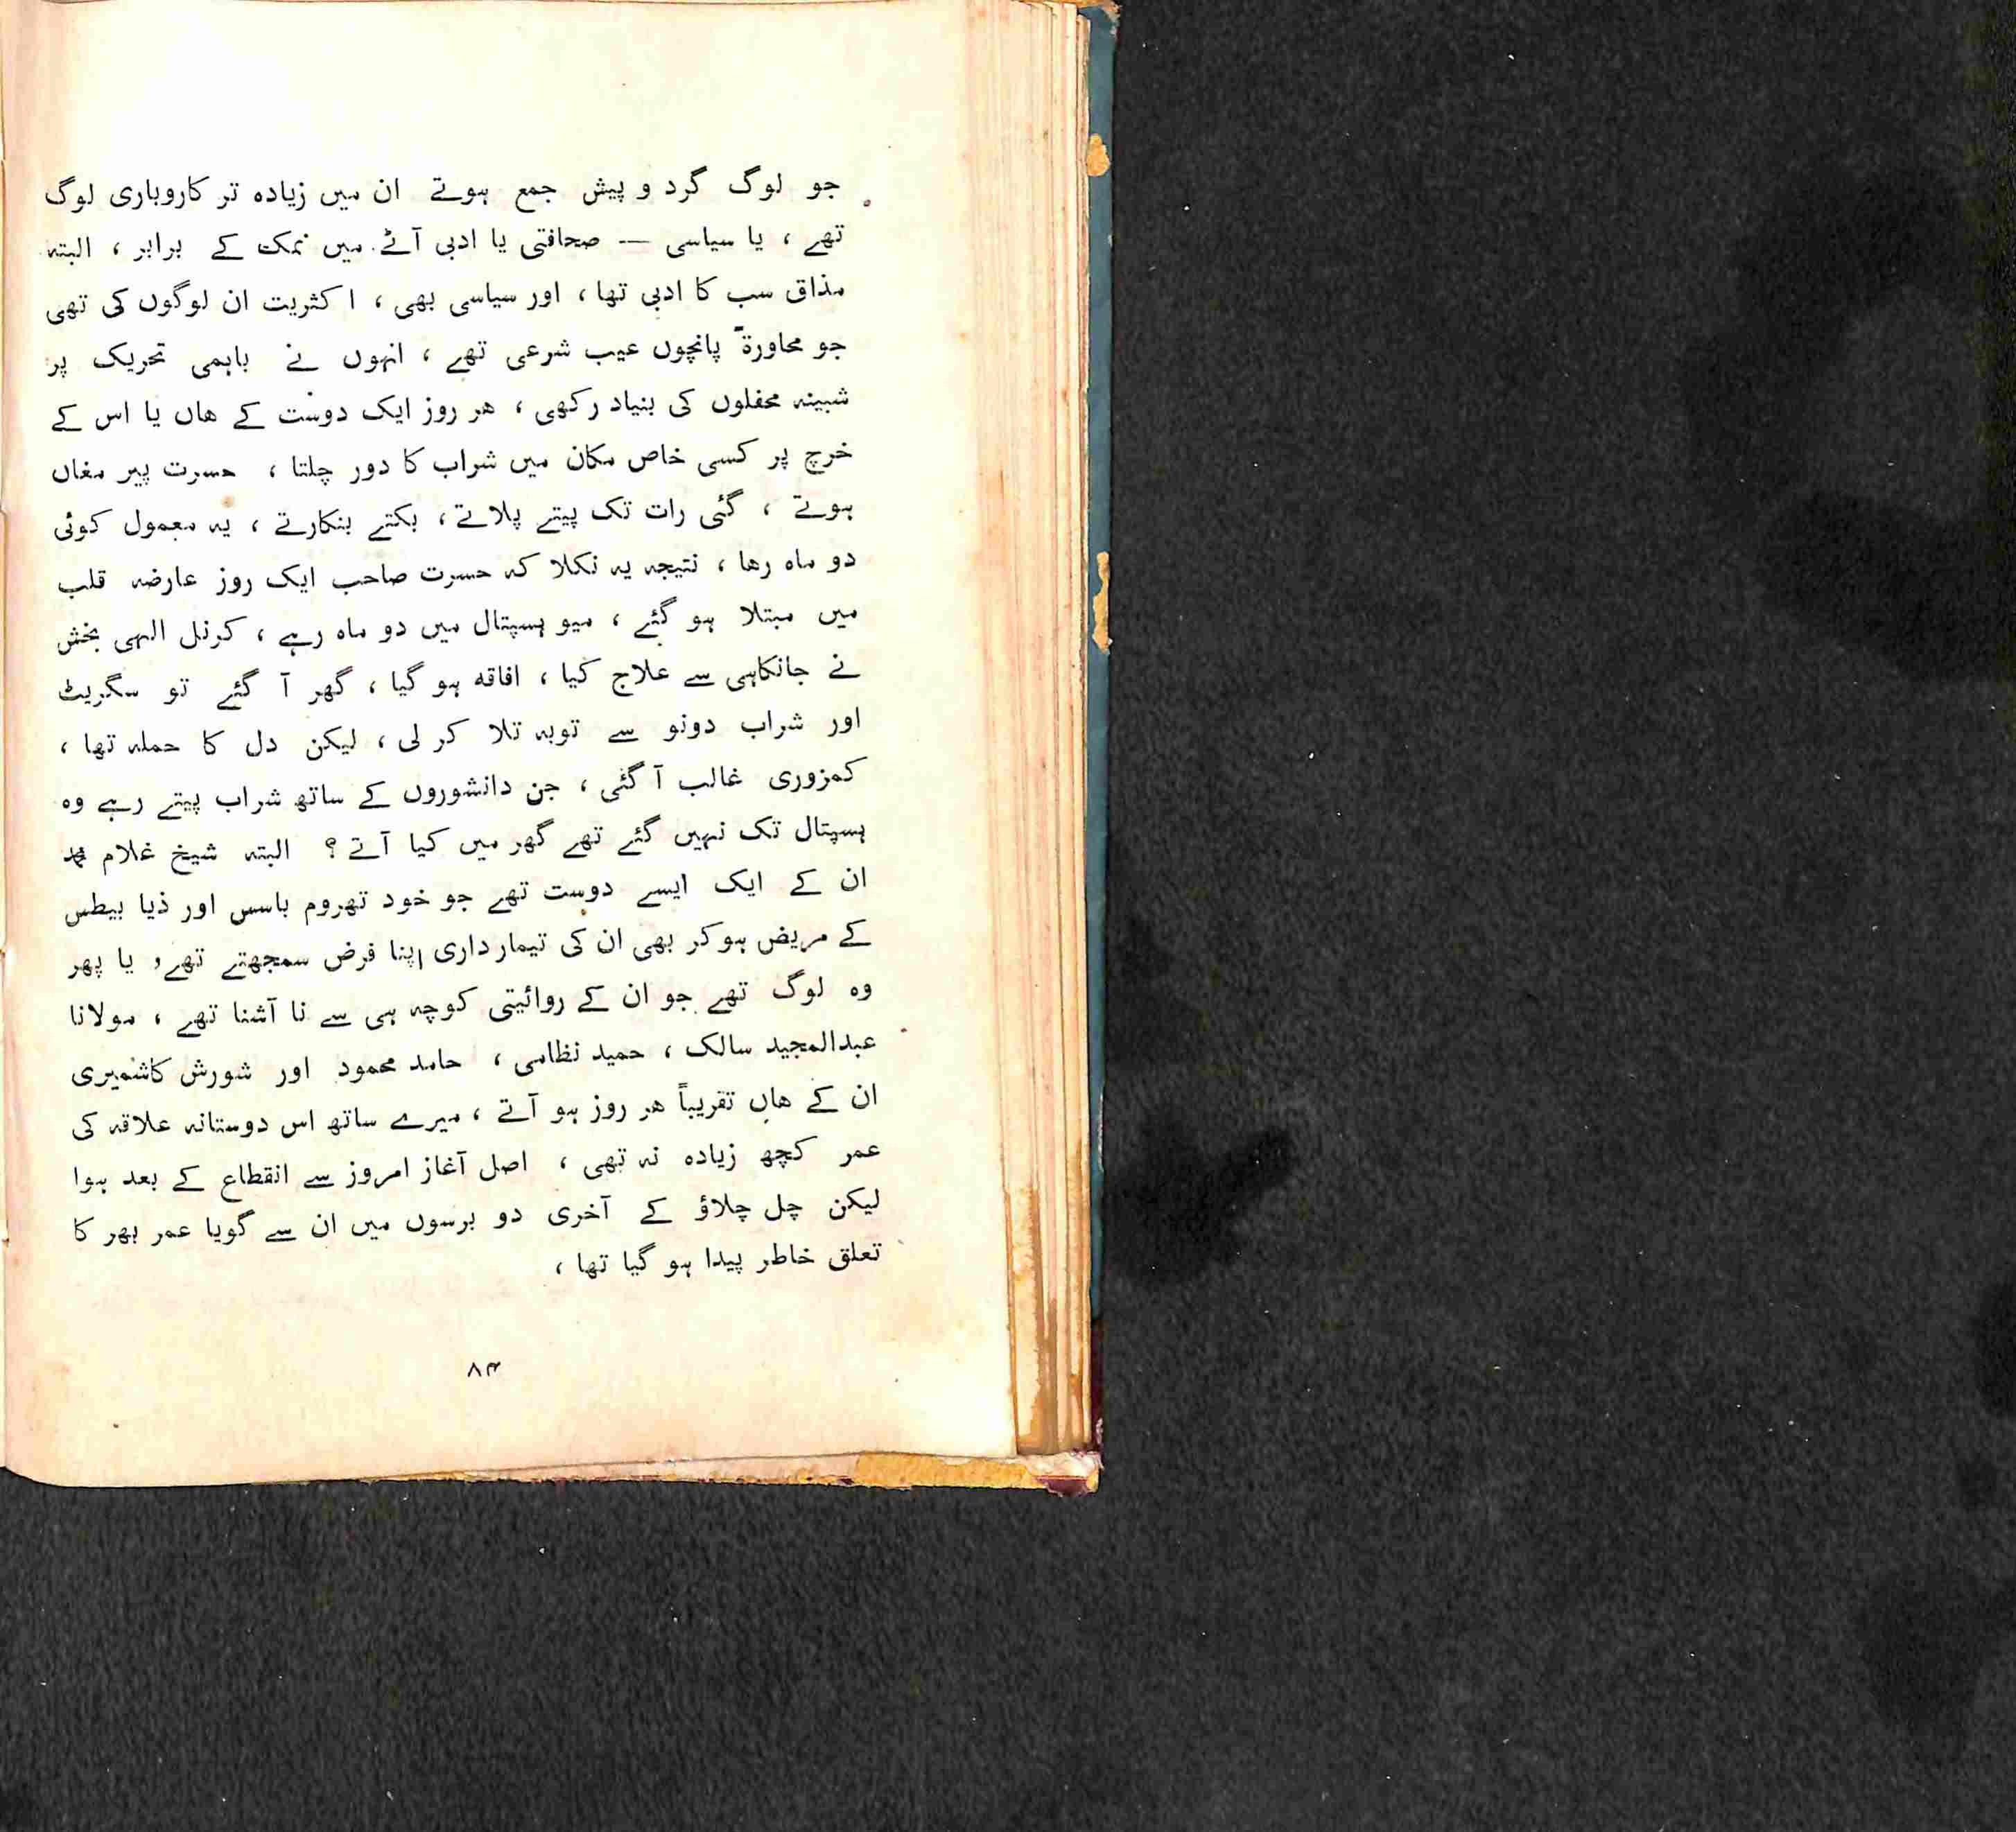 جو لوگ گرد و پیش جمع ہوتے ان میں زیادہ تر کاروباری لوگ
تھے ، یا سیاسی — صحافتی یا ادبی آٹے میں نمک کے برابر ، البتہ
مذاق سب کا ادبی تھا ، اور سیاسی بھی ، اکثریت ان لوگوں کی تھی
جو محاورۃً پانچوں عیب شرعی تھے ، انہوں نے باہمی تحریک پر
شبینہ محفلوں کی بنیاد رکھی ، ھر روز ایک دوست کے ھاں یا اس کے
خرچ پر کسی خاص مکان میں شراب کا دور چلتا ، حسرت پیر مغاں
ہوتے ، گئی رات تک پیتے پلاتے ، بکتے بنکارتے ، یہ معمول کوئی
دو ماہ رھا ، نتیجہ یہ نکلا کہ حسرت صاحب ایک روز عارضہ قلب
میں مبتلا ہو گئے ، میو ہسپتال میں دو ماہ رہے ، کرنل الہی بخش
نے جانکاہی سے علاج کیا ، افاقہ ہو گیا ، گھر آ گئے تو سگریٹ
اور شراب دونو سے توبہ تلا کر لی ، لیکن دل کا حملہ تھا ،
کمزوری غالب آ گئی ، جن دانشوروں کے ساتھ شراب پیتے رہے وہ
ہسپتال تک نہیں گئے تھے گھر میں کیا آتے ؟ البتہ شیخ غلام محمد
ان کے ایک ایسے دوست تھے جو خود تھروم باسس اور ذیا بیطس
کے مریض ہوکر بھی ان کی تیمارداری اپنا فرض سمجھتے تھے، یا پھر
وہ لوگ تھے جو ان کے روائیتی کوچہ ہی سے نا آشنا تھے ، مولانا
عبدالمجید سالک ، حمید نظامی ، حامد محمود اور شورش کاشمیری
ان کے ھاں تقریباً ھر روز ہو آتے ، میرے ساتھ اس دوستانہ علاقہ کی
عمر کچھ زیادہ نہ تھی ، اصل آغاز امروز سے انقطاع کے بعد ہوا
لیکن چل چلاؤ کے آخری دو برسوں میں ان سے گویا عمر بھر کا
تعلق خاطر پیدا ہو گیا تھا ،
۸۴